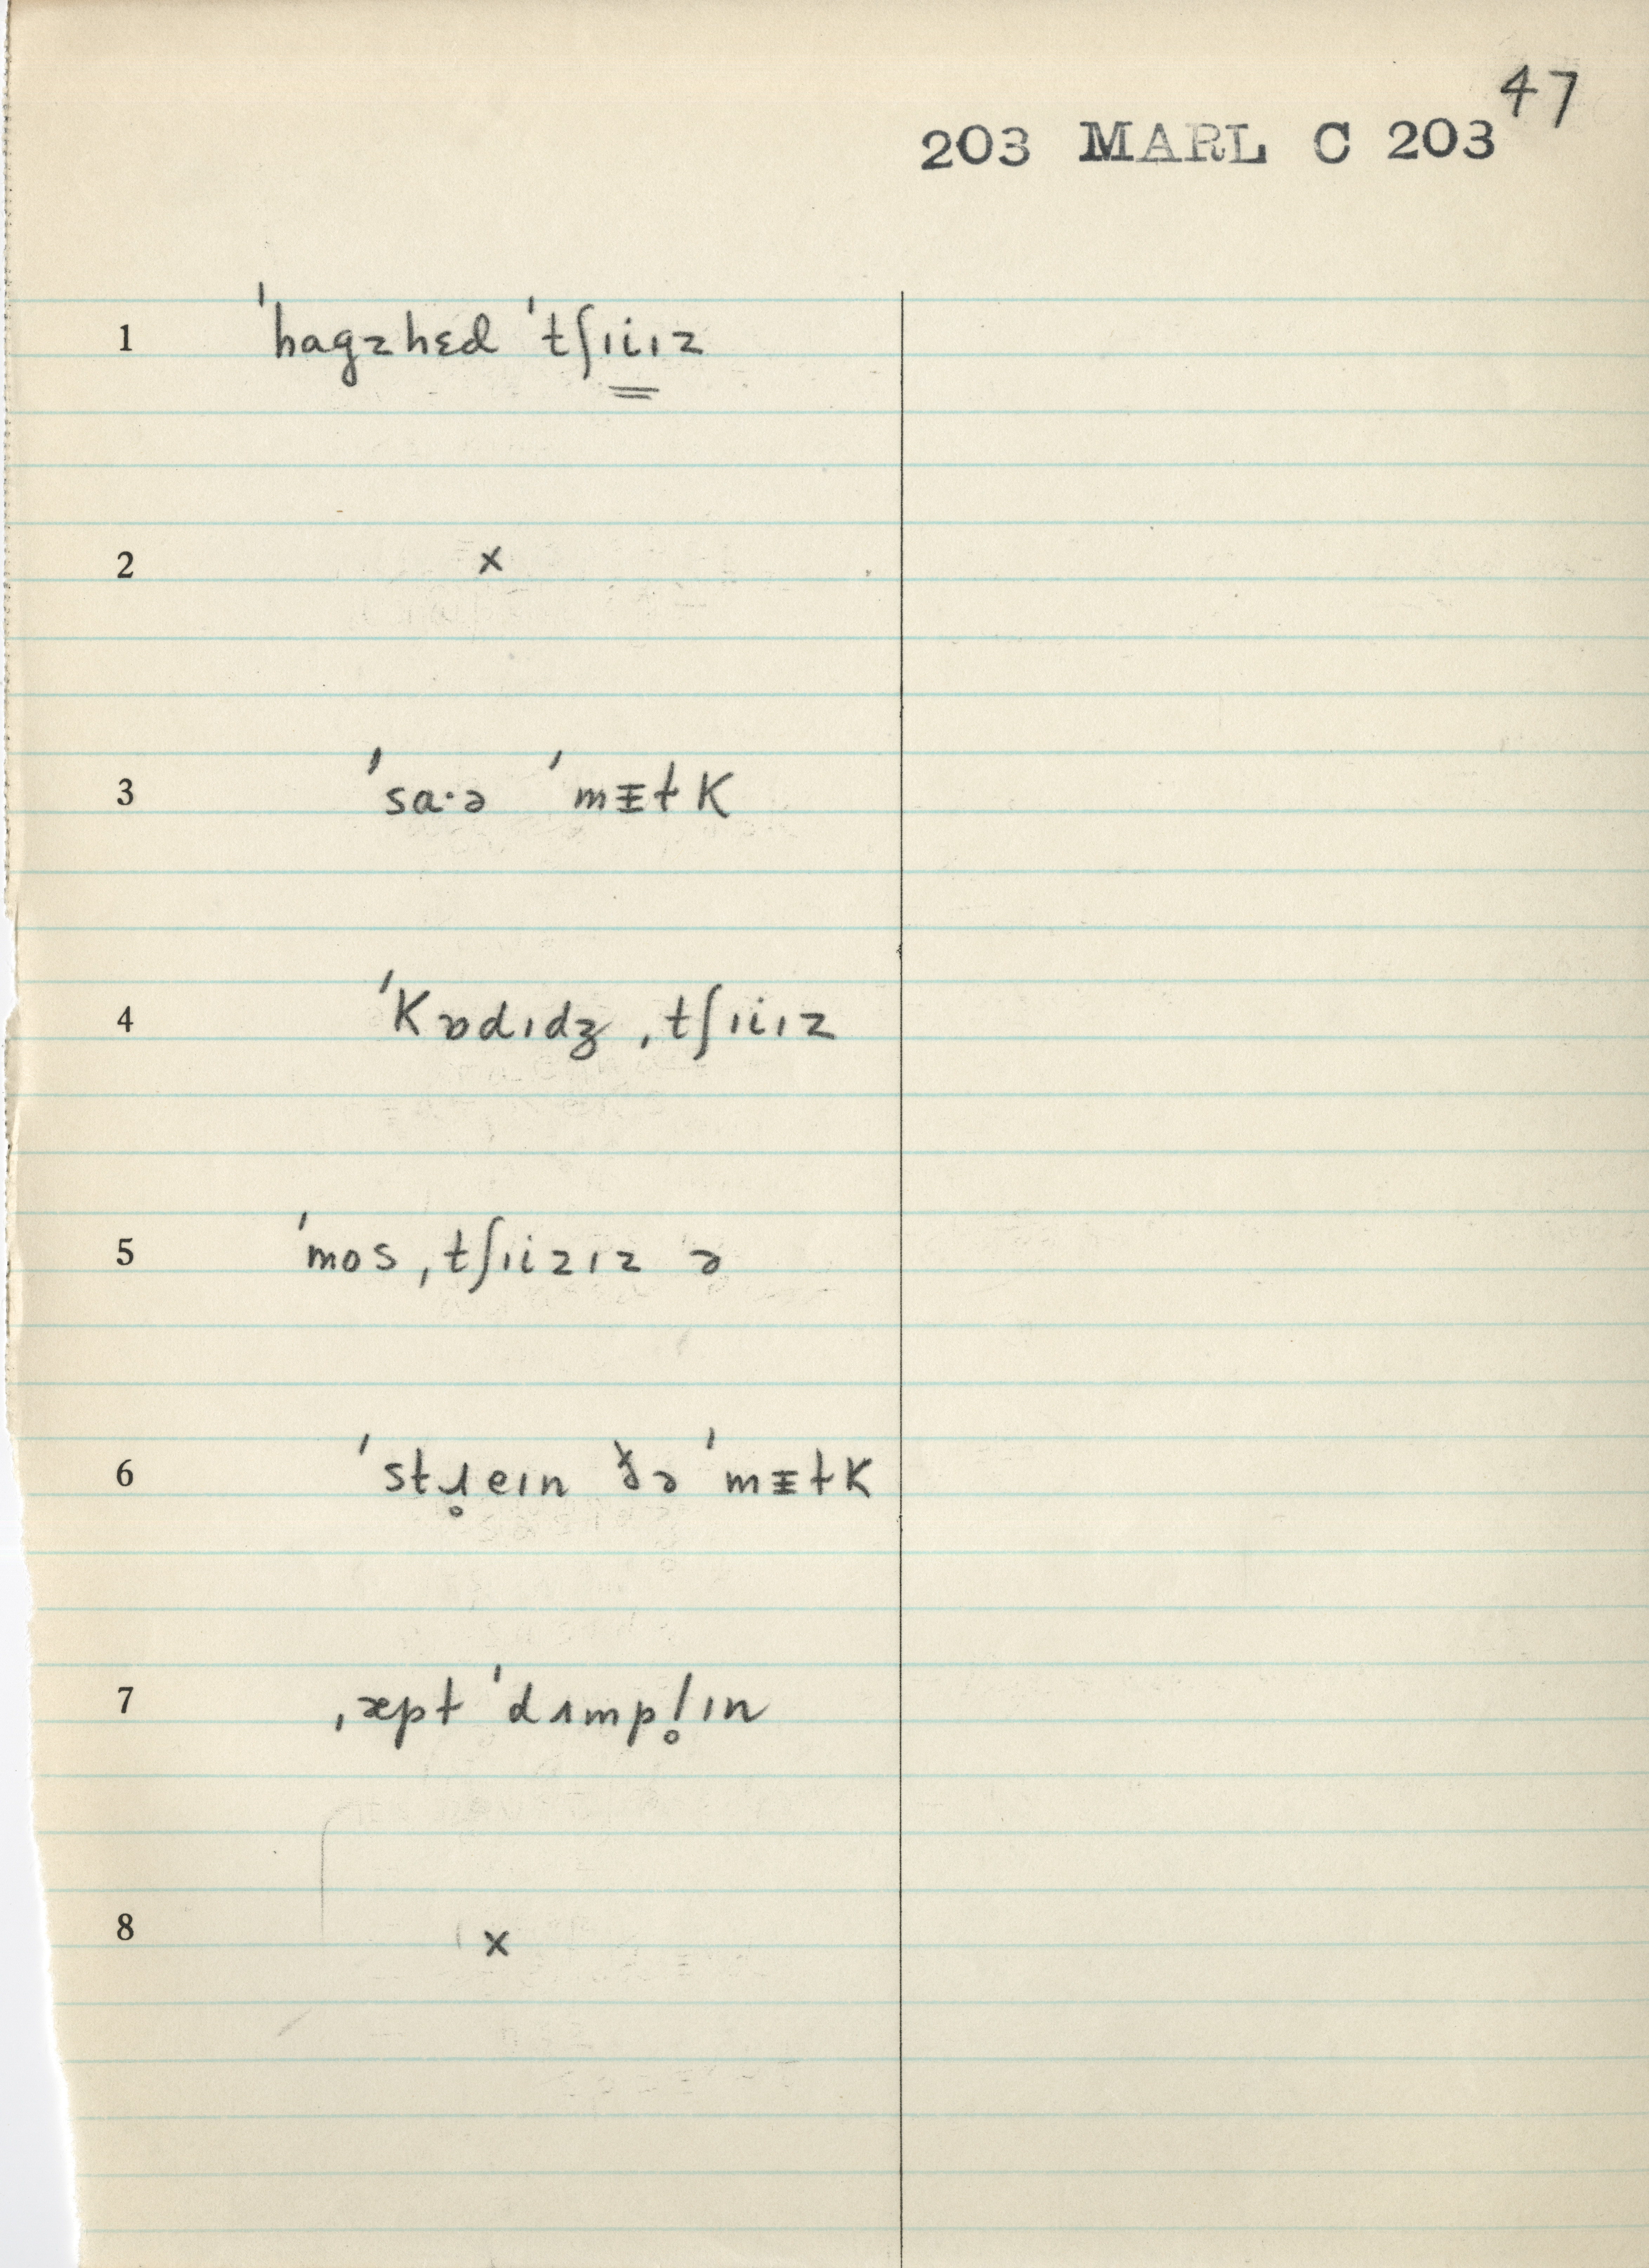 47
203 MARL C 203
1 ˈhagzhɛd ˈtʃɪiɪz
2 x
3 ˈsa·ə ˈmɪɫk
4 ˈkɒdɪdʒ ˌtʃɪiɪz
5 ˈmos ˌtʃɪizɪz ə
6 ˈstɹ̥eɪn ðə ˈmɪɫk
7 ˌæpt ˈdʌmpl̥ɪn
8 x